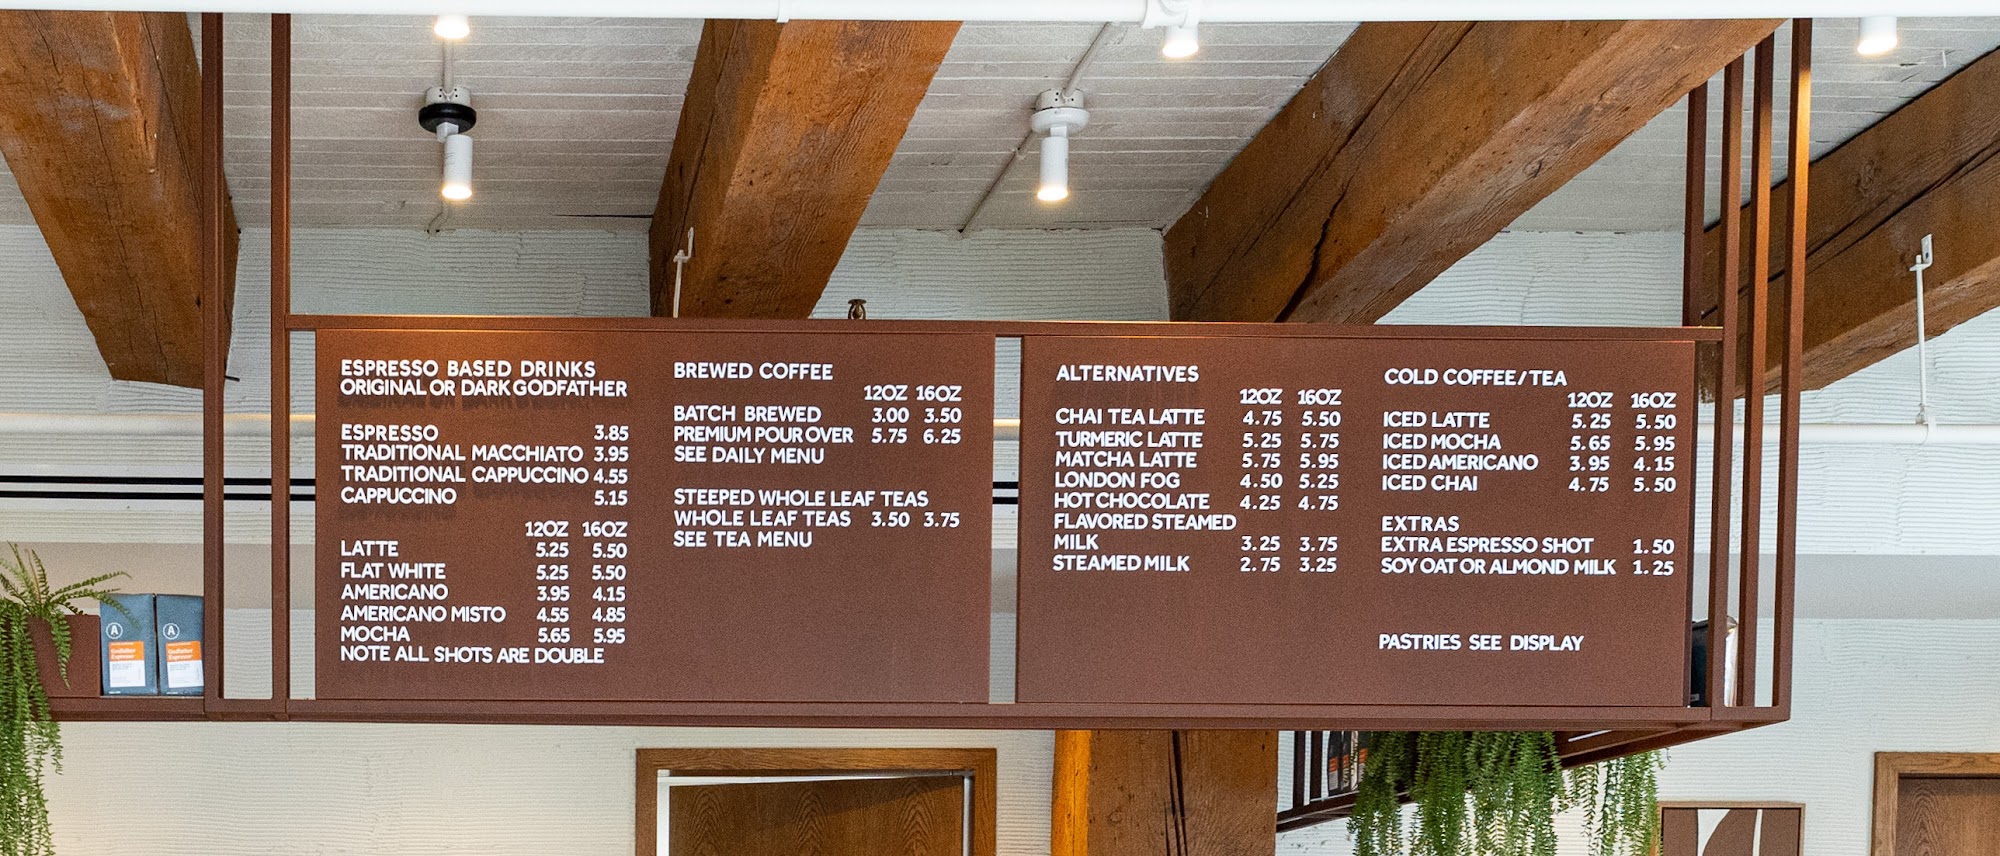 ESPRESSO BASED DRINKS
ORIGINAL OR DARK GODFATHER
ESPRESSO 3.85
TRADITIONAL MACCHIATO 3.95
TRADITIONAL CAPPUCCINO 4.55
CAPPUCCINO 5.15
12OZ 16OZ
LATTE 5.25 5.50
FLAT WHITE 5.25 5.50
AMERICANO 3.95 4.15
AMERICANO MISTO 4.55 4.85
MOCHA 5.65 5.95
NOTE ALL SHOTS ARE DOUBLE
BREWED COFFEE
12OZ 16OZ
BATCH BREWED 3.00 3.50
PREMIUM POUR OVER 5.75 6.25
SEE DAILY MENU
STEEPED WHOLE LEAF TEAS
WHOLE LEAF TEAS 3.50 3.75
SEE TEA MENU
ALTERNATIVES
12OZ 16OZ
CHAI TEA LATTE 4.75 5.50
TURMERIC LATTE 5.25 5.75
MATCHA LATTE 5.75 5.95
LONDON FOG 4.50 5.25
HOT CHOCOLATE 4.25 4.75
FLAVORED STEAMED
MILK 3.25 3.75
STEAMED MILK 2.75 3.25
COLD COFFEE/TEA
12OZ 16OZ
ICED LATTE 5.25 5.50
ICED MOCHA 5.65 5.95
ICED AMERICANO 3.95 4.15
ICED CHAI 4.75 5.50
EXTRAS
EXTRA ESPRESSO SHOT 1.50
SOY OAT OR ALMOND MILK 1.25
PASTRIES SEE DISPLAY
A
Godfather
Espresso
A
Godfather
Espresso